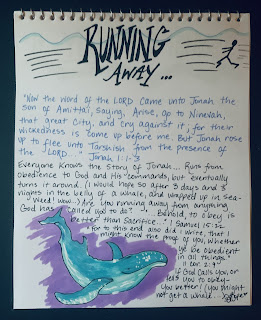 RUNNING
AWAY...
"Now the word of the LORD came unto Jonah the
son of Amittai, saying, Arise, go to Ninevah,
that great City, and cry against it; for their
wickedness is come up before me. But Jonah rose
up to flee unto Tarshish from the presence of
the LORD..." Jonah 1:1-3
Everyone knows the story of Jonah... Runs from
obedience to God and His commands, but eventually
turns it around. (I would hope so after 3 days and 3
nights in the belly of a whale, and wrapped up in sea-
weed! wow...) Are you running away from anything
God has called you to do? "...Behold, to obey is
better than Sacrifice..." 1 Samuel 15:22
"For to this end also did I write, that I
might know the proof of you, whether
ye be obedient
in all things"
II Cor. 2:9
If God calls you, or
tells you to obey-
You better! (You might
not get a whale...)